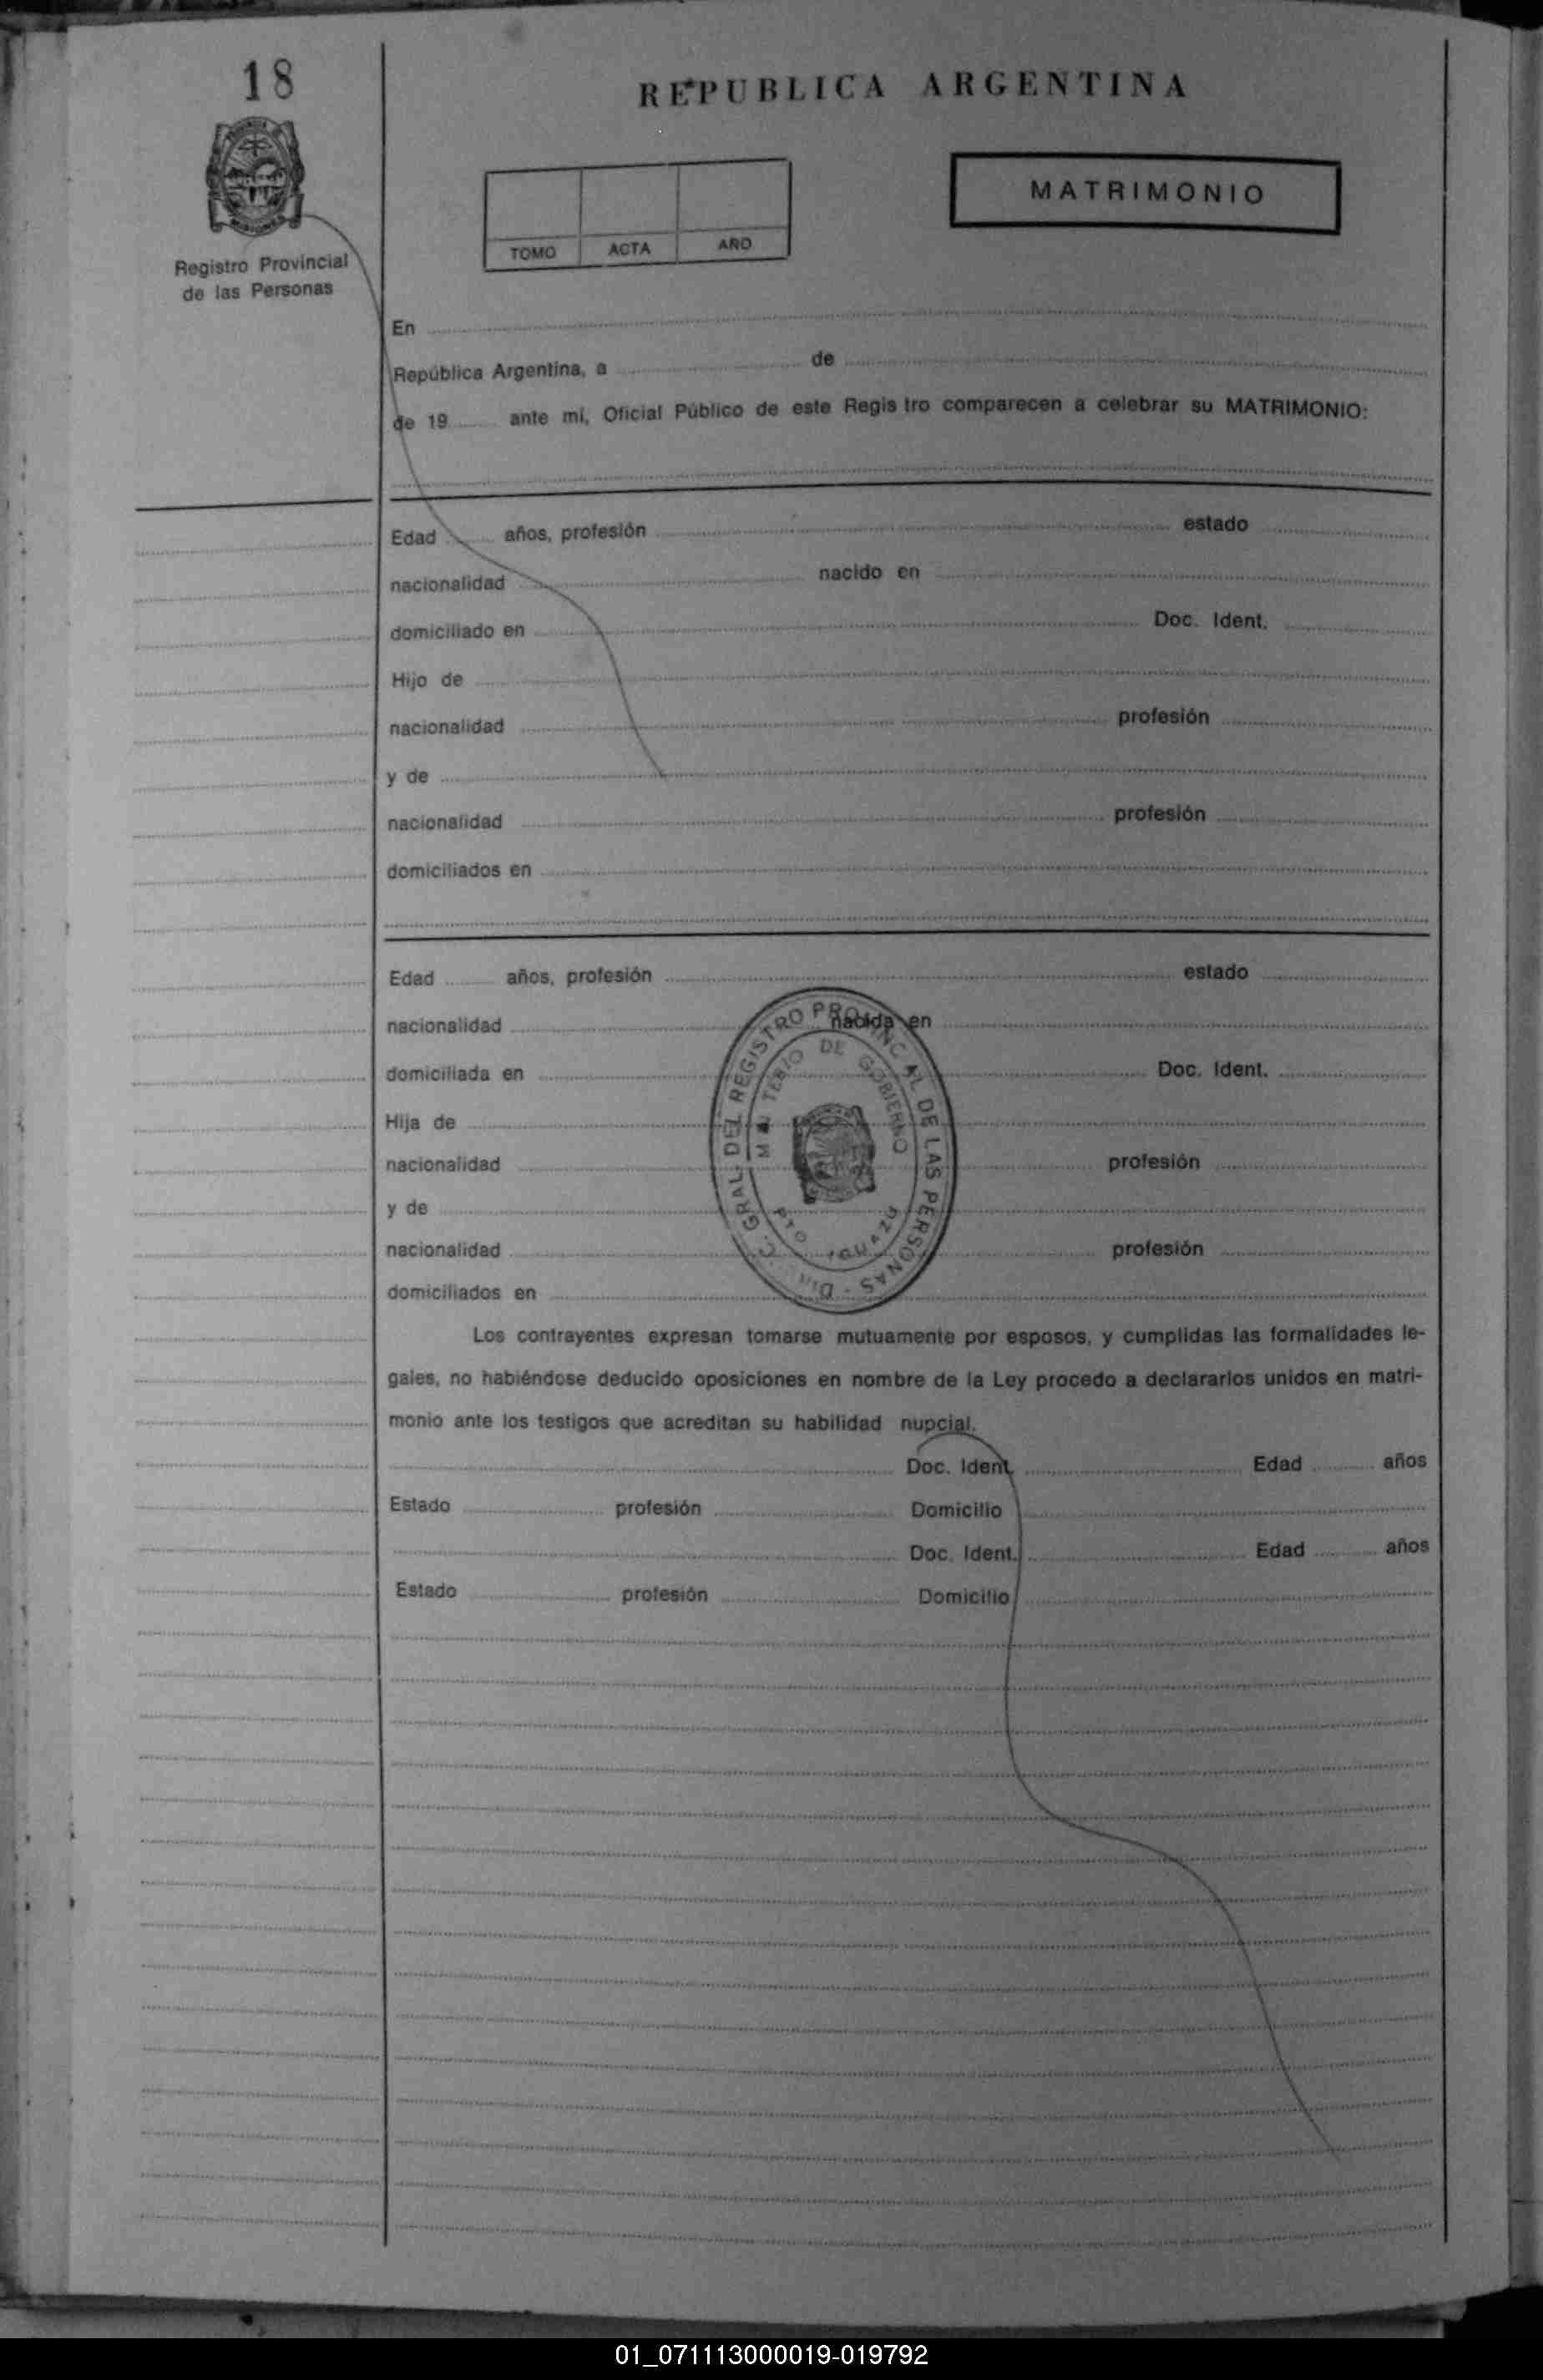 18
REPUBLICA ARGENTINA
MATRIMONIO
TOMO ACTA AÑO
Registro Provincial
de las Personas
En
República Argentina, a de
de 19 ante mí, Oficial Público de este Regis tro comparecen a celebrar su MATRIMONIO:
Edad años, profesión estado
nacionalidad nacido en
domiciliado en Doc. Ident.
Hijo de
nacionalidad profesión
y de
nacionalidad profesión
domiciliados en
Edad años, profesión estado
nacionalidad nacida en
domiciliada en Doc. Ident.
Hija de
nacionalidad profesión
y de
nacionalidad profesión
domiciliados en
GRAL. DEL REGISTRO DE LAS PERSONAS
DE GOBIERNO
PTO IGUAZU
Los contrayentes expresan tomarse mutuamente por esposos, y cumplidas las formalidades le-
gales, no habiéndose deducido oposiciones en nombre de la Ley procedo a declararlos unidos en matri-
monio ante los testigos que acreditan su habilidad nupcial.
Doc. Ident. Edad años
Estado profesión Domicilio
Doc. Ident. Edad años
Estado profesión Domicilio
01_071113000019-019792